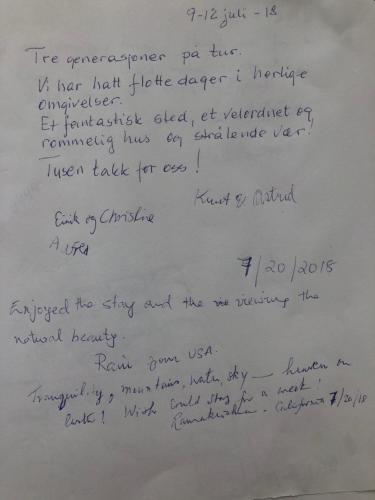 9-12 juli - 18
Tre generasjoner på tur.
Vi har hatt flotte dager i herlige
omgivelser.
Et fantastisk sted, et velordnet og
rommelig hus og strålende vær!
Tusen takk for oss!
Knut & Astrid
Eirik og Christine
7/20/2018
Enjoyed the stay and the viewing the
natural beauty.
Ravi from USA.
Tranquility, mountains, water, sky — heaven on
earth! Wish could stay for a week!
Ramakrishna. California 7/20/18